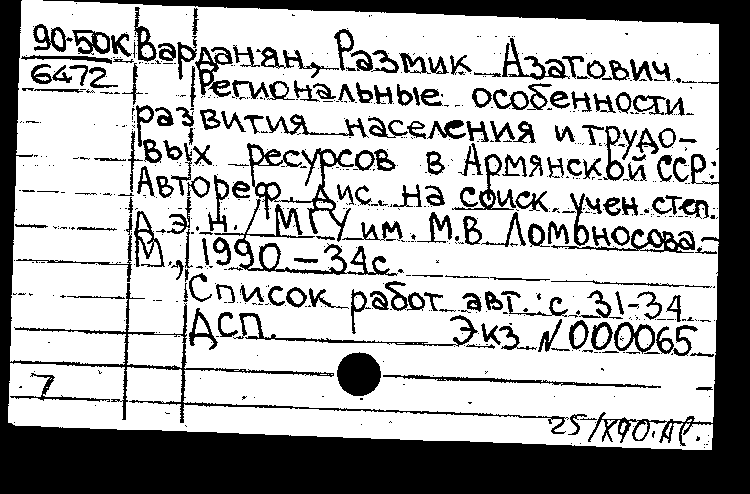 90-50к Варданян, Размик Азатович.
6472 Региональные особенности
развития населения и трудо-
вых ресурсов в Армянской ССР:
Автореф. дис. на соиск. учен. степ.
д.э.н. / МГУ им. М.В Ломоносова.-
М., 1990.-34с.
Список работ авт.: с. 31-34.
ДСП. Экз N 000065
7
25/X90.